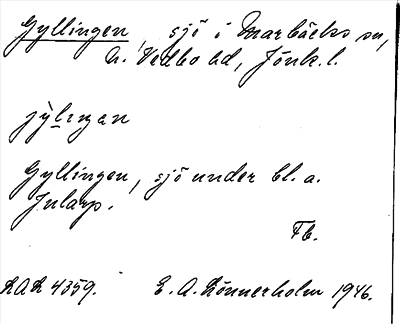 Gyllingen, sjö i Marbäcks sn,
N. Vedbo hd, Jönk. l.
jỳlıŋan
Gyllingen, sjö under bl. a.
Julary.
Fb.
LAL 4359. E. A. Lönnerholm 1946.